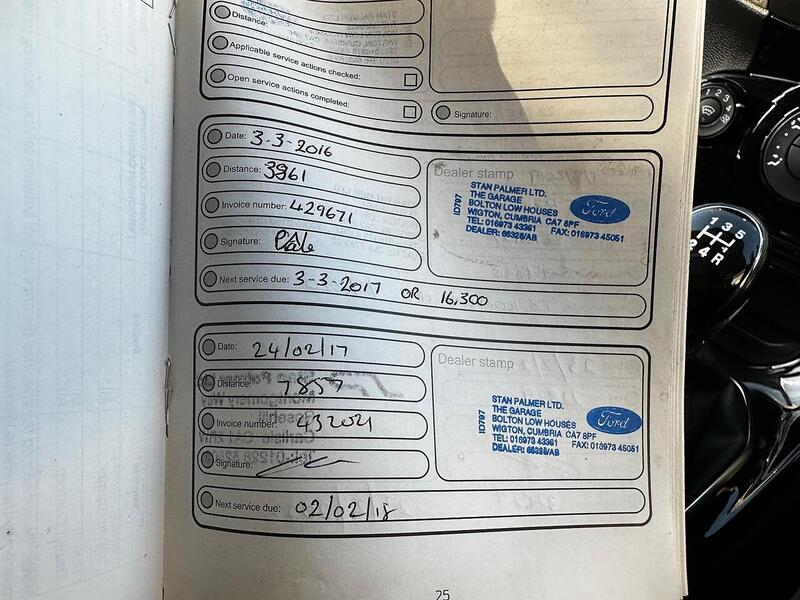 Distance:
Applicable service actions checked:
Open service actions completed:
Signature:
Date: 3-3-2016
Distance: 3961
Invoice number: 429671
Signature:
Next service due: 3-3-2017 OR 16,300
Dealer stamp
STAN PALMER LTD.
THE GARAGE
BOLTON LOW HOUSES
WIGTON, CUMBRIA CA7 8PF
TEL: 016973 43361 FAX: 016973 45051
DEALER: 66328/AB
ID797
Ford
Date: 24/02/17
Distance: 7857
Invoice number: 432021
Signature:
Next service due: 02/02/18
Dealer stamp
STAN PALMER LTD.
THE GARAGE
BOLTON LOW HOUSES
WIGTON, CUMBRIA CA7 8PF
TEL: 016973 43361 FAX: 016973 45051
DEALER: 66328/AB
ID797
Ford
25
1 2 3 4
1 3 5
2 4 R